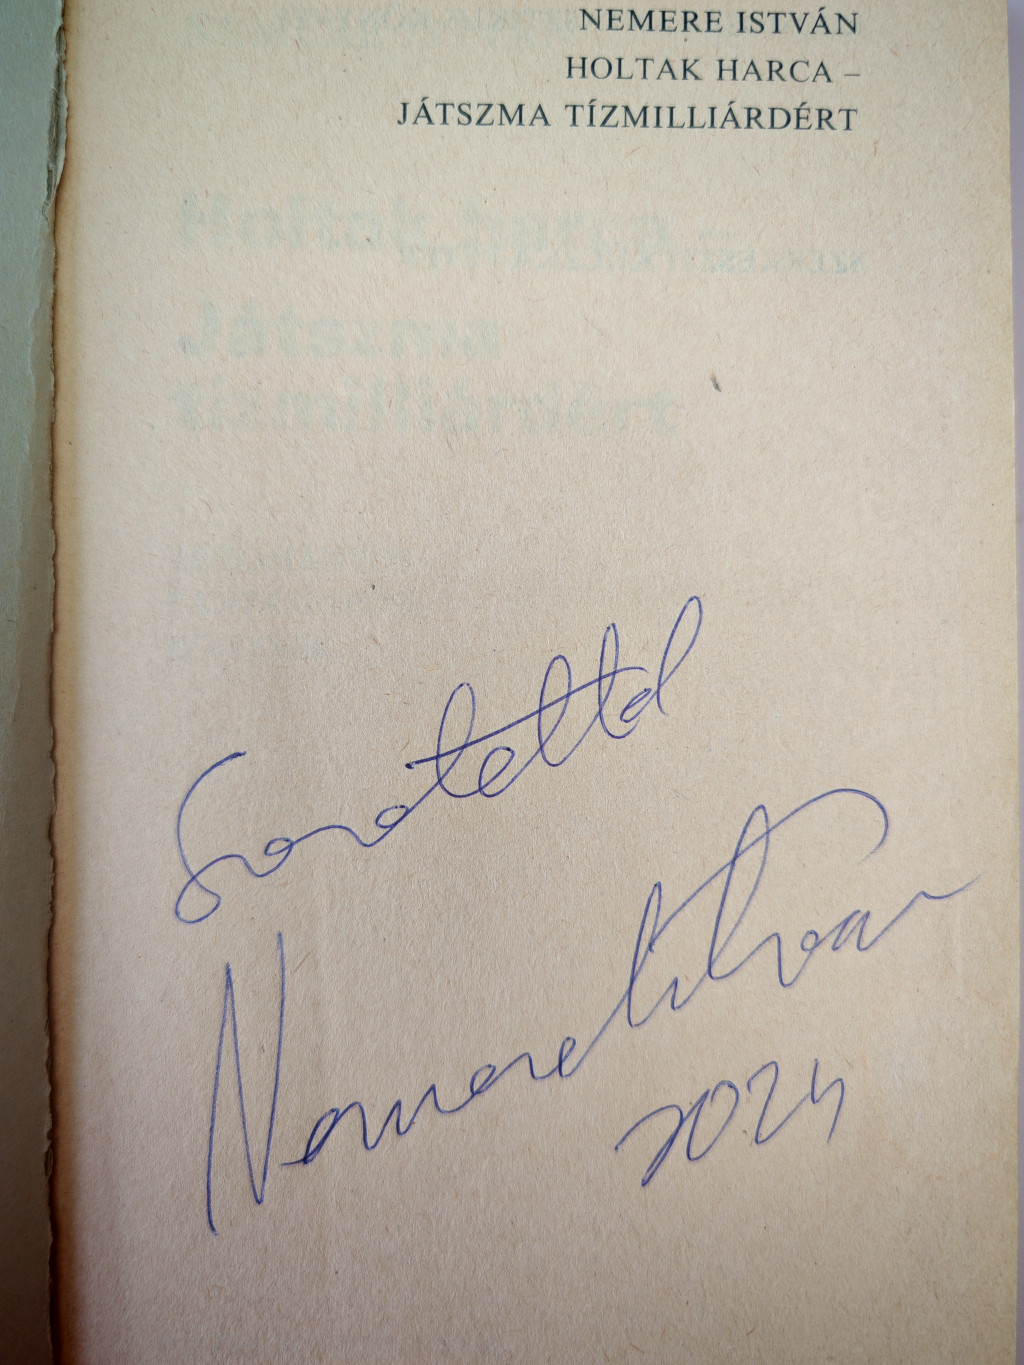 NEMERE ISTVÁN
HOLTAK HARCA –
JÁTSZMA TÍZMILLIÁRDÉRT
Szeretettel
Nemere István
2024